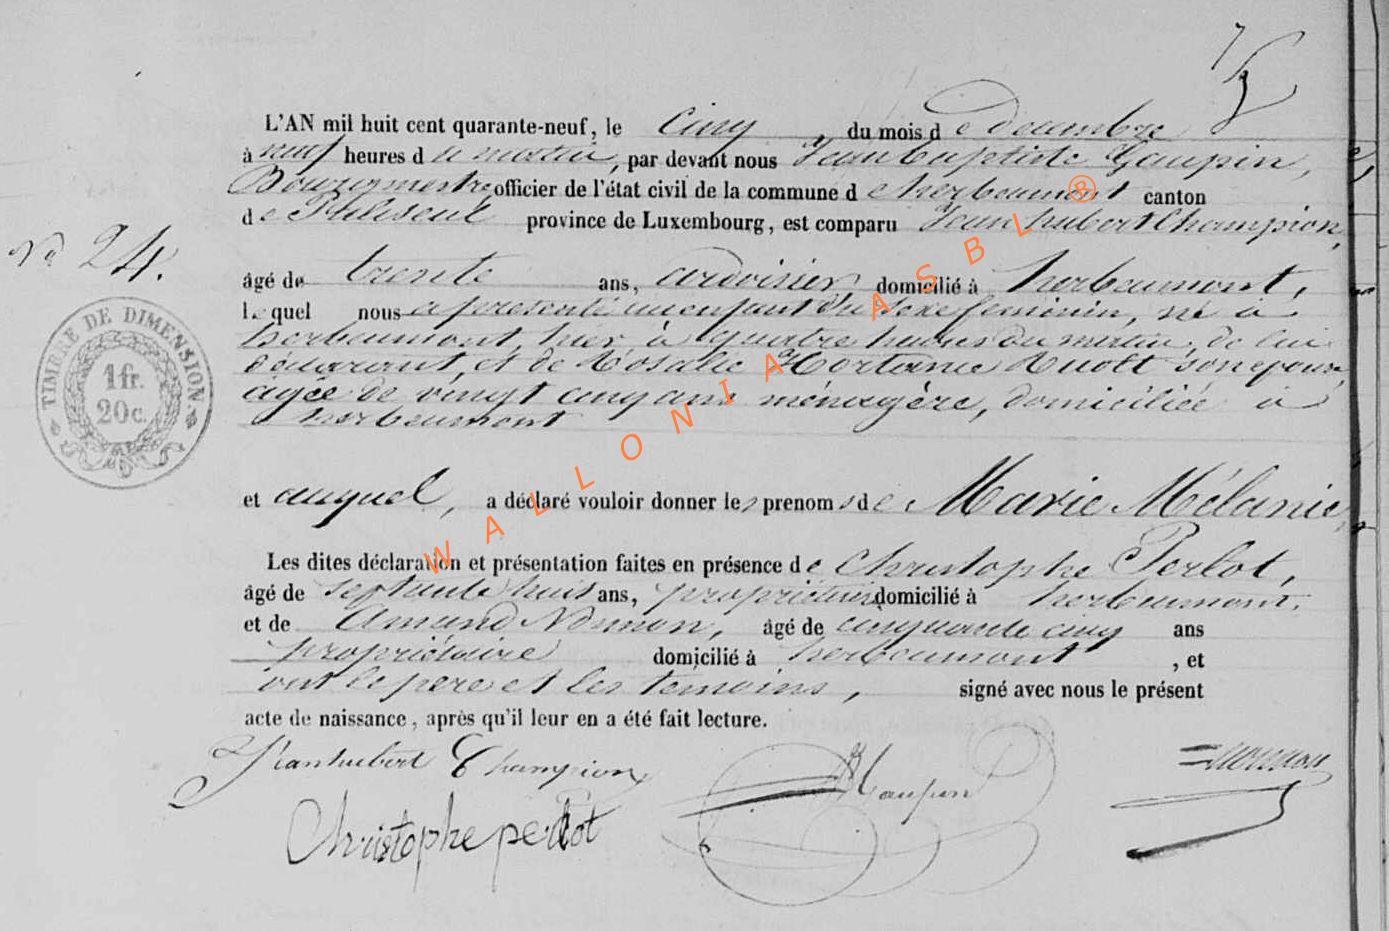 L'AN mil huit cent quarante-neuf, le Cinq, du mois de decembre
à neuf heures du matin, par devant nous Jean baptiste Gaupin,
Bourgmestre officier de l'état civil de la commune de herbeumont canton
de Paliseul province de Luxembourg, est comparu Jean hubert Champion,
No 24.
âgé de trente ans, ardoisier domicilié à herbeumont,
lequel nous a presenté un enfant du sexe feminin, né à
herbeumont, hier, à quatre heures du matin, de lui
déclarant, et de Rosalie Hortense son epouse
agée de vingt cinq ans ménagère, domiciliée à
herbeumont
TIMBRE DE DIMENSION
1 fr.
20 c.
et auquel, a déclaré vouloir donner les prenoms de Marie Mélanie,
Les dites déclaration et présentation faites en présence de Christophe Perlot,
âgé de septante huit ans, propriétaire domicilié à herbeumont,
et de Amand, âgé de cinquante cinq ans
propriétaire domicilié à herbeumont, et
ont le pere et les temoins, signé avec nous le présent
acte de naissance, après qu'il leur en a été fait lecture.
Jeanhubert Champion
Christophe perlot
WALLONIA ASBL ®